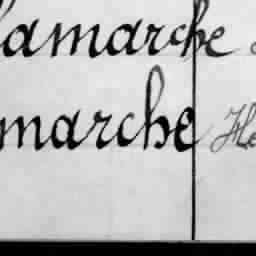 lamarche
marche He